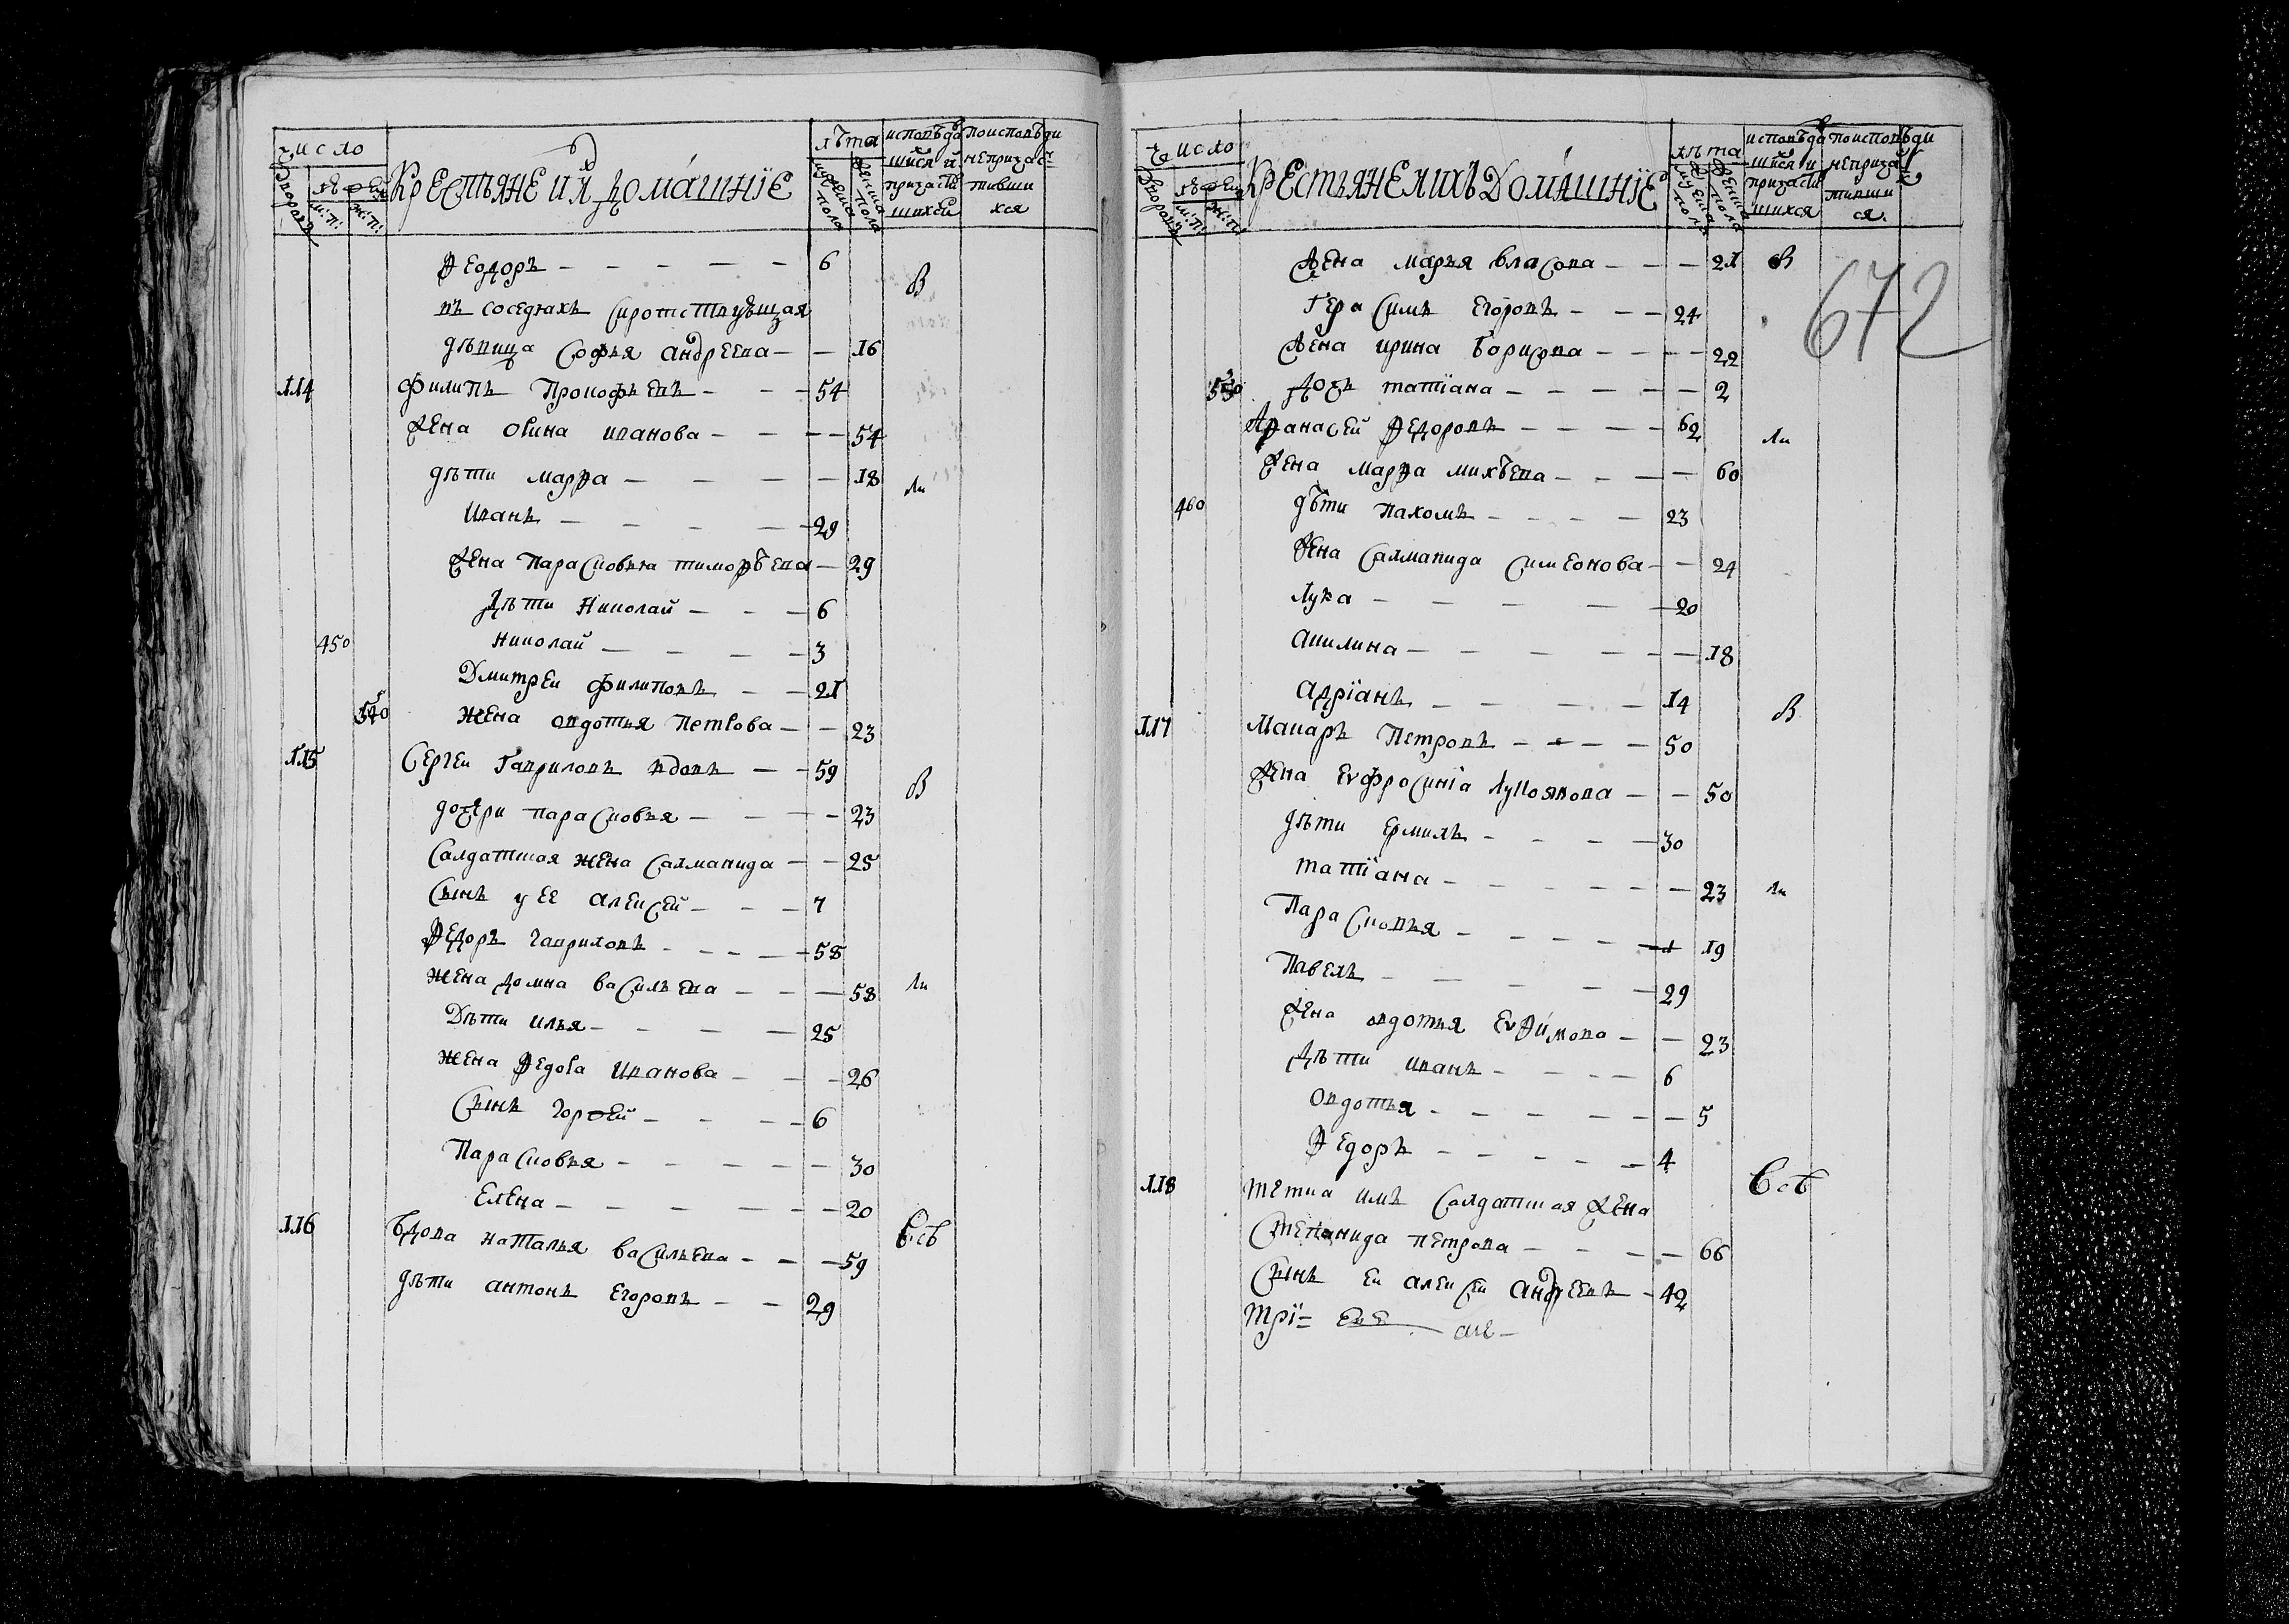 Число
лѣта
исповѣда
поисповѣди
дворовъ
Крестьяне и ихъ домашнiе
мужеска пола
женска пола
шися и
непричас
м: п:
ж: п:
причасти
тивши
шихся
хся
Ѳеодоръ — — — — — 6
въ соседяхъ сиротствующая
В
дѣвица Софья Андреева — — 16
114 Филипъ Прокофьевъ — — — 54
жена Орина Иванова — — — — 54
дѣти Марѳа — — — — — 18
ли
Иванъ — — — — — 29
жена Парасковья Тимоѳѣева — 29
Дѣти Николай — — — 6
450 Николай — — — — 3
Дмитреи Филиповъ — — 21
жена Овдотья Петрова — — 23
115 Сергеи Гавриловъ вдовъ — — 59
В
дочери Парасковья — — — — 23
Салдатская жена Саламанида — — 25
Сынъ у ее Алексей — — — 7
Ѳедоръ Гавриловъ — — — — 58
жена Домна Васильева — — — 58
ли
Дѣти Илья — — — — 25
жена Ѳедора Иванова — — — 26
Сынъ Гордей — — — — 6
Парасковья — — — — — 30
Елена — — — — — — 20
116 Вдова Наталья Васильева — — — 59
Всѣ
дѣти Антонъ Егоровъ — — 29
Число
лѣта
исповѣда
поисповѣди
дворовъ
Крестьяне и ихъ домашнiе
мужеска пола
женска пола
шися и
неприча
м: п:
ж: п:
причасти
тивши
шихся
ся.
672
жена Марья Власова — — — 21 В
Герасимъ Егоровъ — — — 24
жена Ирина Борисова — — — — 22
550 дочь Татiана — — — — — 2
Аѳанасей Ѳедоровъ — — — — 62
ли
жена Марѳа Михѣева — — — — 60
460 дѣти Пахомъ — — — — 23
жена Саламанида Симеонова — — 24
Лука — — — — — 20
Акилина — — — — — — 18
Адрiанъ — — — — — 14
В
117 Макаръ Петровъ — — — — 50
жена Еѵфросинiа Лукоянова — — 50
дѣти Ермилъ — — — — 30
Татiана — — — — — — 23
ли
Парасковья — — — — — 19
Павелъ — — — — — 29
жена Овдотья Еѵѳимова — — 23
Дѣти Иванъ — — — — 6
Овдотья — — — — — — 5
Ѳедоръ — — — — — 4
118 тетка имъ Салдатская жена
Всѣ
Степанида Петрова — — — — 66
Сынъ еи Алексеи Андреевъ — 42